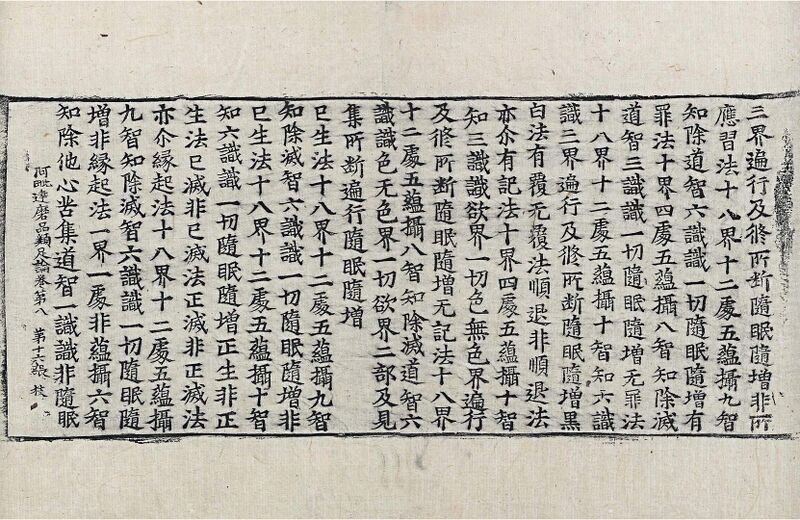 三界遍行及修所断隨眠隨增非所
應習法十八界十二處五蘊攝九智
知除道智六識識一切隨眠隨增有
罪法十界四處五蘊攝八智知除滅
道智三識識一切隨眠隨增无罪法
十八界十二處五蘊攝十智知六識
識三界遍行及修所断隨眠隨增黑
白法有覆无覆法順退非順退法
亦尒有記法十界四處五蘊攝十智
知三識識欲界一切色無色界遍行
及修所断隨眠隨增无記法十八界
十二處五蘊攝八智知除滅道智六
識識色无色界一切欲界二部及見
集所断遍行隨眠隨增
已生法十八界十二處五蘊攝九智
知除滅智六識識一切隨眠隨增非
已生法十八界十二處五蘊攝十智
知六識識一切隨眠隨增正生非正
生法已滅非已滅法正滅非正滅法
亦尒緣起法十八界十二處五蘊攝
九智知除滅智六識識一切隨眠隨
增非緣起法一界一處非蘊攝六智
知除他心苦集道智一識識非隨眠
阿毗達磨品類足論卷第八 第十六張